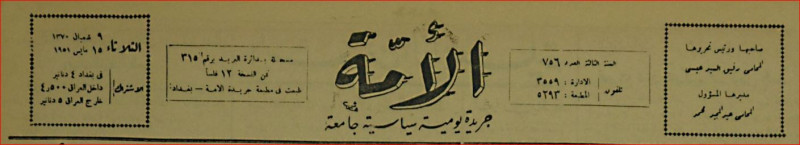 صاحبها ورئيس تحريرها
المحامي رفيق السيد عيسى
مديرها المسؤول
المحامي عبد المجيد محمد
السنة الثالثة العدد ٧٥٦
تلفون
الادارة : ٣٥٥٩
المطبعة : ٥٢٩٣
الأمة
جريدة يومية سياسية جامعة
مسجلة بدائرة البريد برقم ٣١٥
ثمن النسخة ١٢ فلساً
طبعت في مطبعة جريدة الامة - بغداد
الثلاثاء
٩ شعبان ١٣٧٠
١٥ مايس ١٩٥١
الاشتراك
في بغداد ٤ دنانير
داخل العراق ٤٫٥٠٠
خارج العراق ٥ دنانير